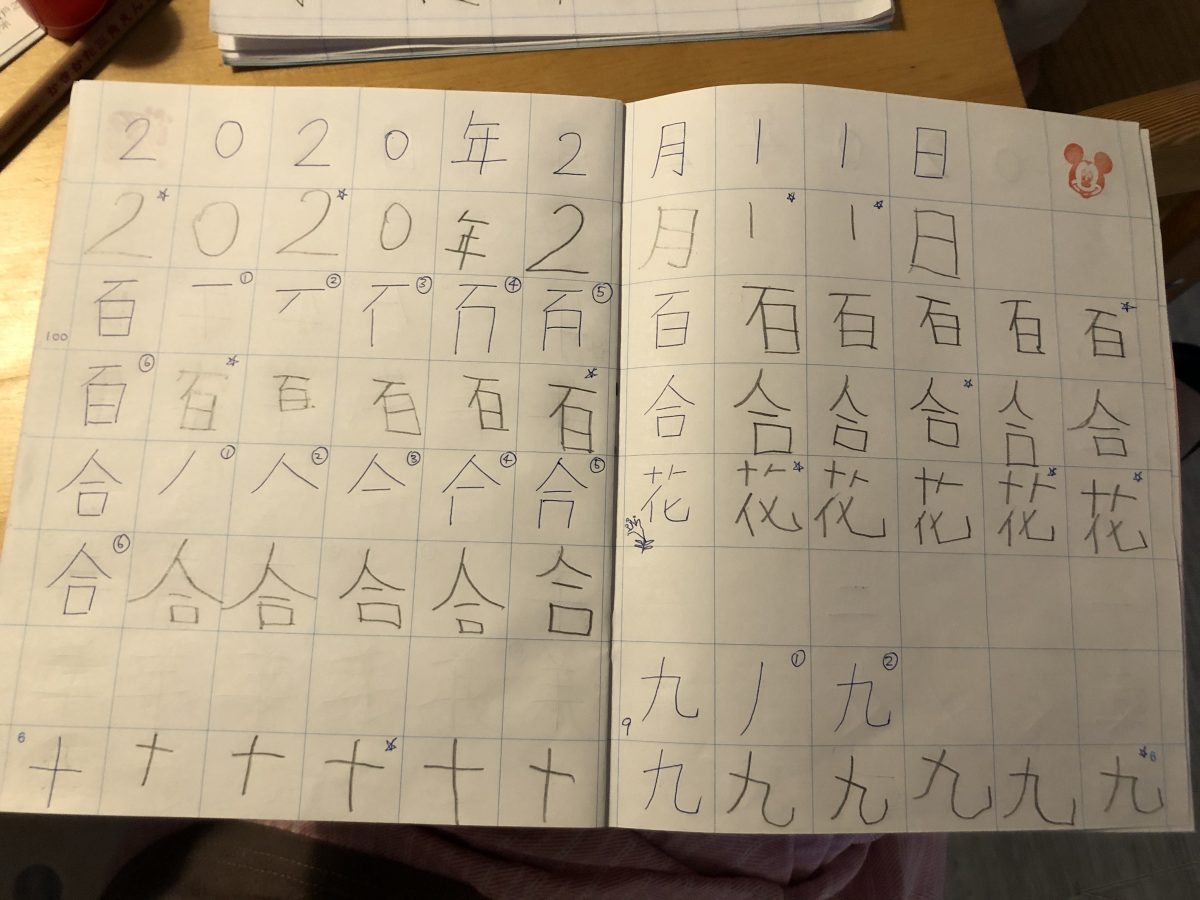 2020年2月11日
2☆02☆0年2月1☆1☆日
100 百 一① ② ③ ④ ⑤ 百百百百百百☆
百⑥百☆百百百百☆ 合合合合☆合合
合 丿① 人② 亼③ ④ ⑤ 花花☆花花花☆花☆
合⑥合合合合合
9 九 丿① 九②
6 十十十十☆十十 九九九九九九☆8